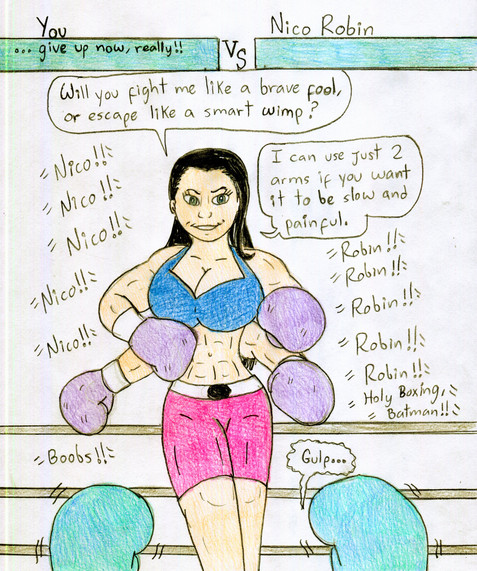 You
... give up now, really!!
VS
Nico Robin
Will you fight me like a brave fool,
or escape like a smart wimp?
I can use just 2
arms if you want
it to be slow and
painful.
Nico!!
Nico!!
Nico!!
Nico!!
Nico!!
Robin!!
Robin!!
Robin!!
Robin!!
Robin!!
Holy Boxing,
Batman!!
Boobs!!
Gulp...